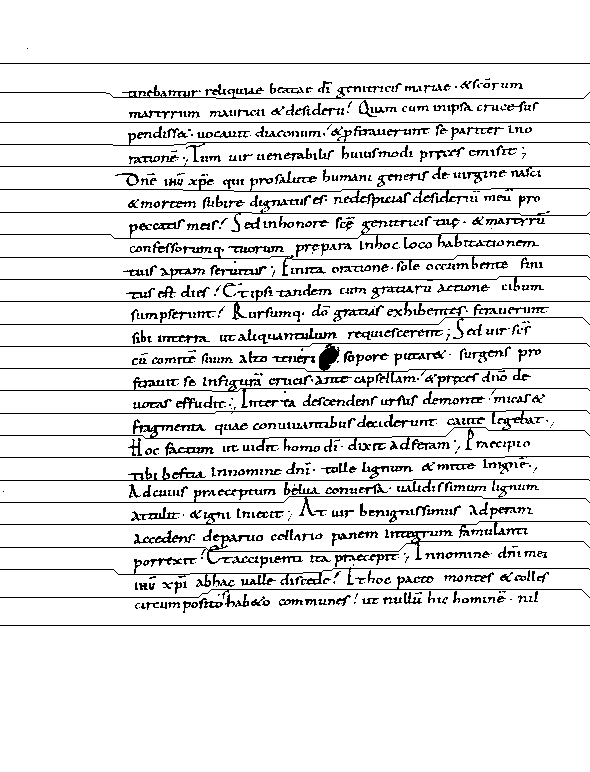 tinebantur reliquiae beatae dī genitricis mariae · & scōrum
martyrum mauricii & desiderii! Quam cum inipsa cruce sus
pendiss&. uocauit diaconum · & pstrauerunt se pariter ino
rationē ; Tum uir uenerabilis huiusmodi preces emisit ;
Dnē ihū xpē qui prosalute humani generis de uirgine nasci
& mortem subire dignatus es. ne despicias desideriū meū pro
peccatis meis! Sed inhonore scę genitricis tuę · & martyrū
confessorumq. tuorum prępara inhoc loco habitationem
tuis aptam seruitus ; Finita oratione · sole occumbente fini
tus est dies! Et ipsi tandem cum gratiarū actione cibum
sumpserunt! Rursumq. dō gratias exhibentes. strauerunt
sibi interra ut aliquantulum requiescerent ; Sed uir scs̄
cū comitē suum alto teneri sopore putar& · surgens pro
strauit se infigurā crucis · ante capsellam · & preces dnō de
uotas effudit ; Interea descendens ursus demonte · micas &
fragmenta quae conuiuantibus deciderunt caute legebat ;
Hoc factum ut uidit homo dī · dixit ad feram ; Praecipio
tibi bestia innomine dnī · tolle lignum & mitte inignē ;
Ad cuius praeceptum belua conuersa · ualidissimum lignum
attulit · & igni iniecit ; At uir benignissimus ad peram
accedens deparuo cellario panem integrum famulanti
porrexit! Et accipienti ita praecepit ; Innomine dnī mei
ihū xpī abhac ualle discede! Ithoc pacto montes & colles
circumpositos habeto communes! ut nullū hic hominē · nil